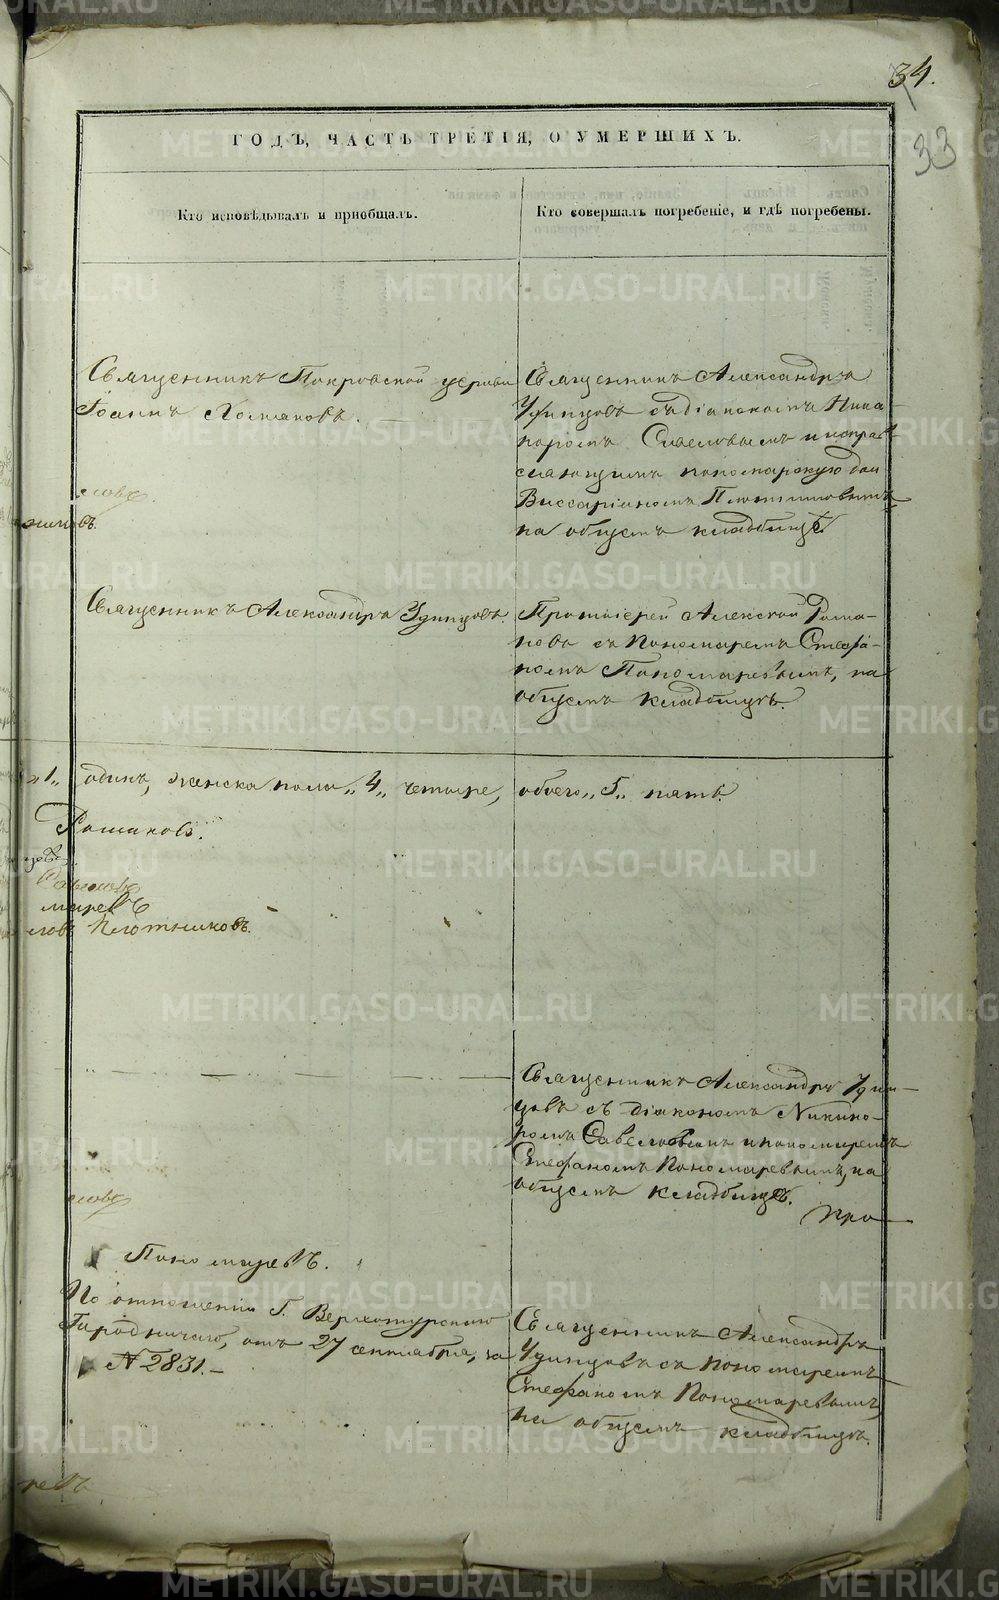 34.
33
ГОДЪ, ЧАСТЬ ТРЕТІЯ, О УМЕРШИХЪ.
Кто исповѣдывалъ и пріобщалъ.
Кто совершалъ погребеніе, и гдѣ погребены.
Священникъ Покровской церкви
Іоаннъ Холмановъ.
Священникъ Александръ
Удинцовъ съ діакономъ Ника-
норомъ и исправ-
ляющимъ пономарскую дол
Виссаріономъ Плотниковымъ
на общемъ кладбищѣ
Священникъ Александръ Удинцовъ.
Протоіерей Алексѣй Рома-
новъ съ Пономаремъ Стефа-
номъ Пономаревымъ, на
общемъ кладбищѣ.
„1„ одинъ, женска пола „4„ четыре,
обоего „5„ пять.
Романовъ.
маревъ
Плотниковъ.
Священникъ Александръ Удин-
цовъ съ діакономъ Никано-
ромъ Савеловымъ и пономаремъ
Стефаномъ Пономаревымъ, на
общемъ кладбищѣ.
Пономаревъ.
По отношенію Г. Верхотурскаго
Городничаго, отъ 27 сентября, за
№ 2831.-
Священникъ Александръ
Удинцовъ съ пономаремъ
Стефаномъ Пономаревымъ,
на общемъ кладбищѣ.
METRIKI.GASO-URAL.RU